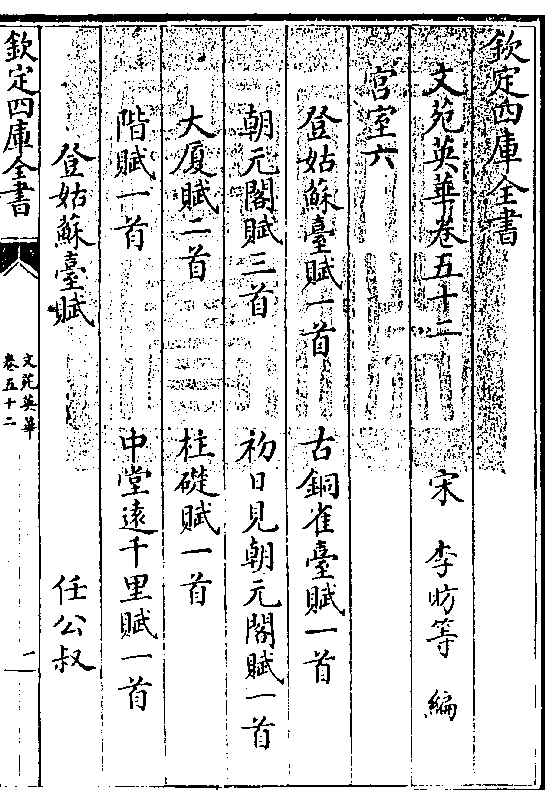 欽定四庫全書
文苑英華卷五十二 宋 李昉等 編
宮室六
登姑蘇臺賦一首 古銅雀臺賦一首
朝元閣賦三首 初日見朝元閣賦一首
大厦賦二首 柱礎賦一首
階賦一首 中堂遠千里賦一首
登姑蘇臺賦 任公叔
欽定四庫全書
文苑英華
卷五十二